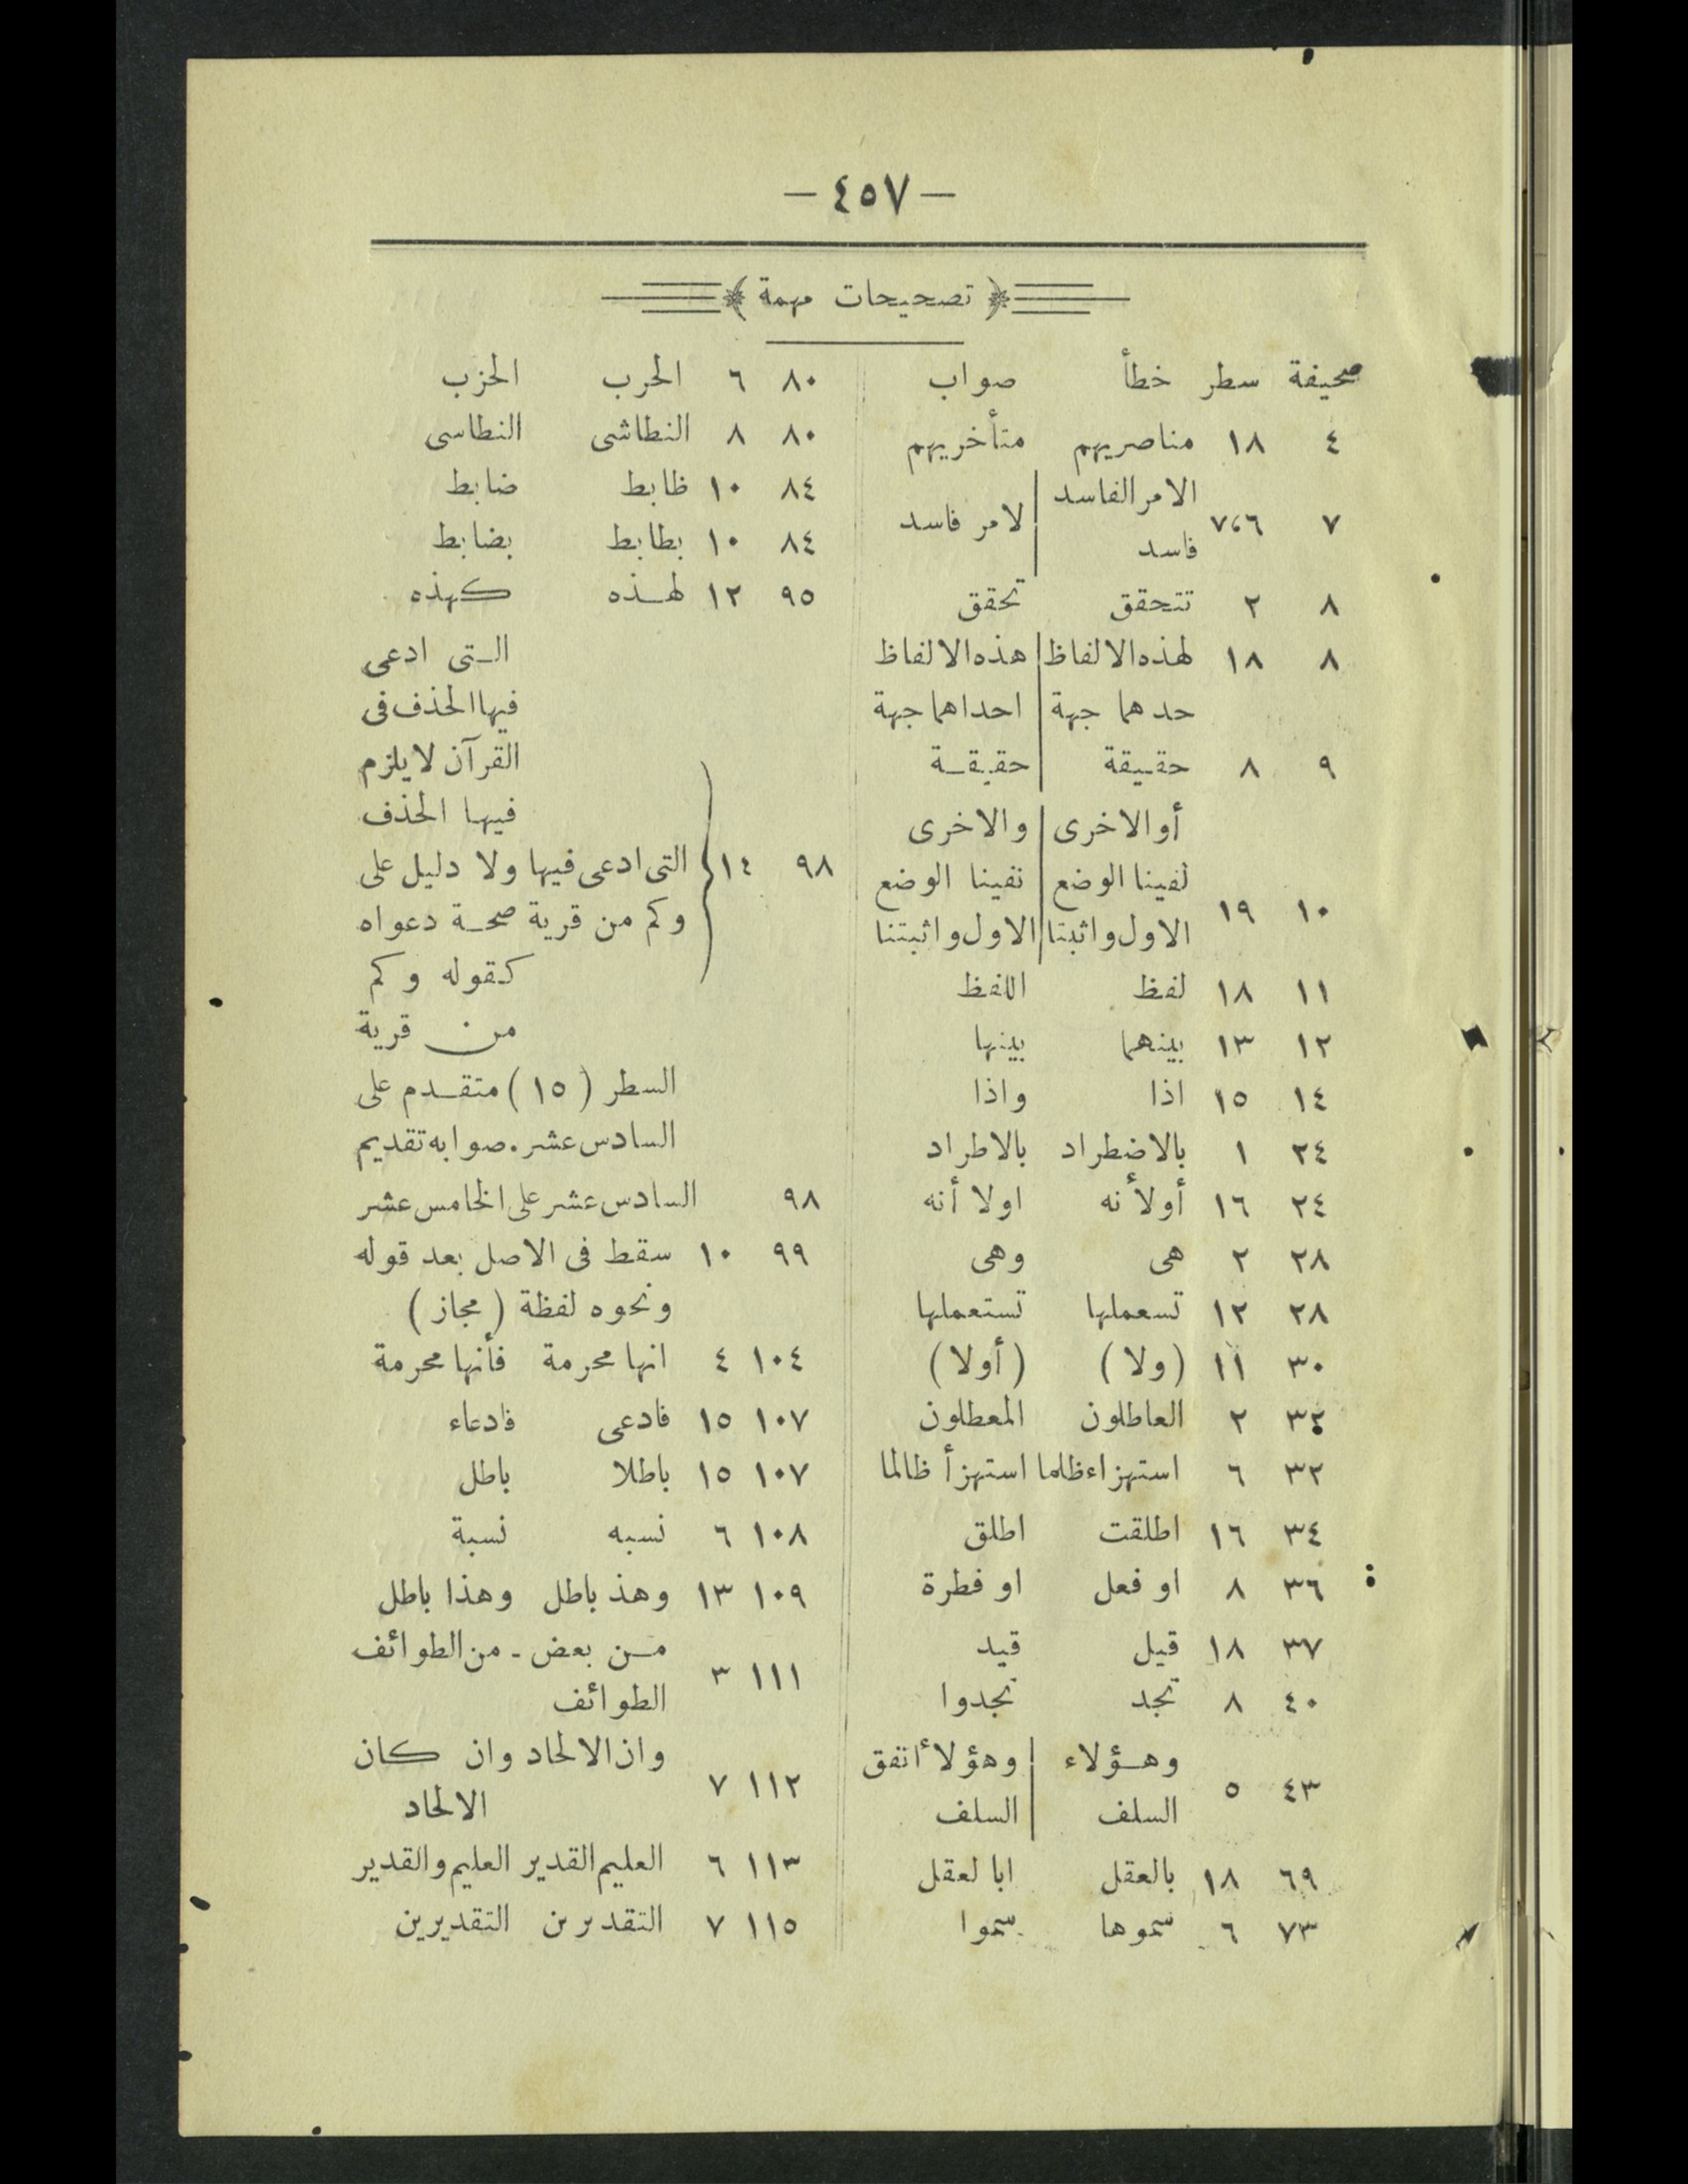 — ٤٥٧ —
﴿ تصحيحات مهمة ﴾
صحيفة سطر خطأ صواب
٤ ١٨ مناصريهم متأخريهم
٧ ٦،٧ الامر الفاسد فاسد | لامر فاسد
٨ ٢ تتحقق تحقق
٨ ١٨ لهذه الالفاظ | هذه الالفاظ
حدهما جهة | احداهما جهة
٩ ٨ حقيقة | حقيقة
أو الاخرى | والاخرى
لفينا الوضع | نفينا الوضع
١٠ ١٩ الاول واثبتا | الاول واثبتنا
١١ ١٨ لفظ اللفظ
١٢ ١٣ بينهما بينها
١٤ ١٥ اذا واذا
٢٤ ١ بالاضطراد بالاطراد
٢٤ ١٦ أولأنه اولا أنه
٢٨ ٢ هى وهى
٢٨ ١٢ تسعملها تستعملها
٣٠ ١١ (ولا) (أولا)
٣٢ ٢ العاطلون المعطلون
٣٢ ٦ استهزاء ظلما استهزأ ظالما
٣٤ ١٦ اطلقت اطلق
٣٦ ٨ او فعل او فطرة
٣٧ ١٨ قيل قيد
٤٠ ٨ تجد تجدوا
٤٣ ٥ وهؤلاء | وهؤلأ اتفق
السلف | السلف
٦٩ ١٨ بالعقل ابا لعقل
٧٣ ٦ سموها سموا
٨٠ ٦ الحرب الحزب
٨٠ ٨ النطاشى النطاسى
٨٤ ١٠ ظابط ضابط
٨٤ ١٠ بطابط بضابط
٩٥ ١٢ لهذه كهذه
التى ادعى
فيها الحذف فى
القرآن لا يلزم
فيها الحذف
٩٨ ١٤ التى ادعى فيها ولا دليل على
وكم من قرية صحة دعواه
كقوله وكم
من قرية
السطر (١٥) متقدم على
السادس عشر. صوابه تقديم
٩٨ السادس عشر على الخامس عشر
٩٩ ١٠ سقط فى الاصل بعد قوله
ونحوه لفظة (مجاز)
١٠٤ ٤ انها محرمة فأنها محرمة
١٠٧ ١٥ فادعى فادعاء
١٠٧ ١٥ باطلا باطل
١٠٨ ٦ نسبه نسبة
١٠٩ ١٣ وهذ باطل وهذا باطل
١١١ ٣ من بعض - من الطوائف
الطوائف
١١٢ ٧ وان الالحاد وان كان
الالحاد
١١٣ ٦ العليم القدير العليم والقدير
١١٥ ٧ التقدرن التقديرين